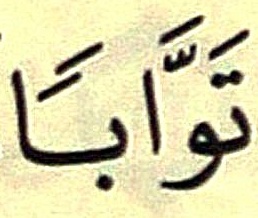 تَوَّابًا